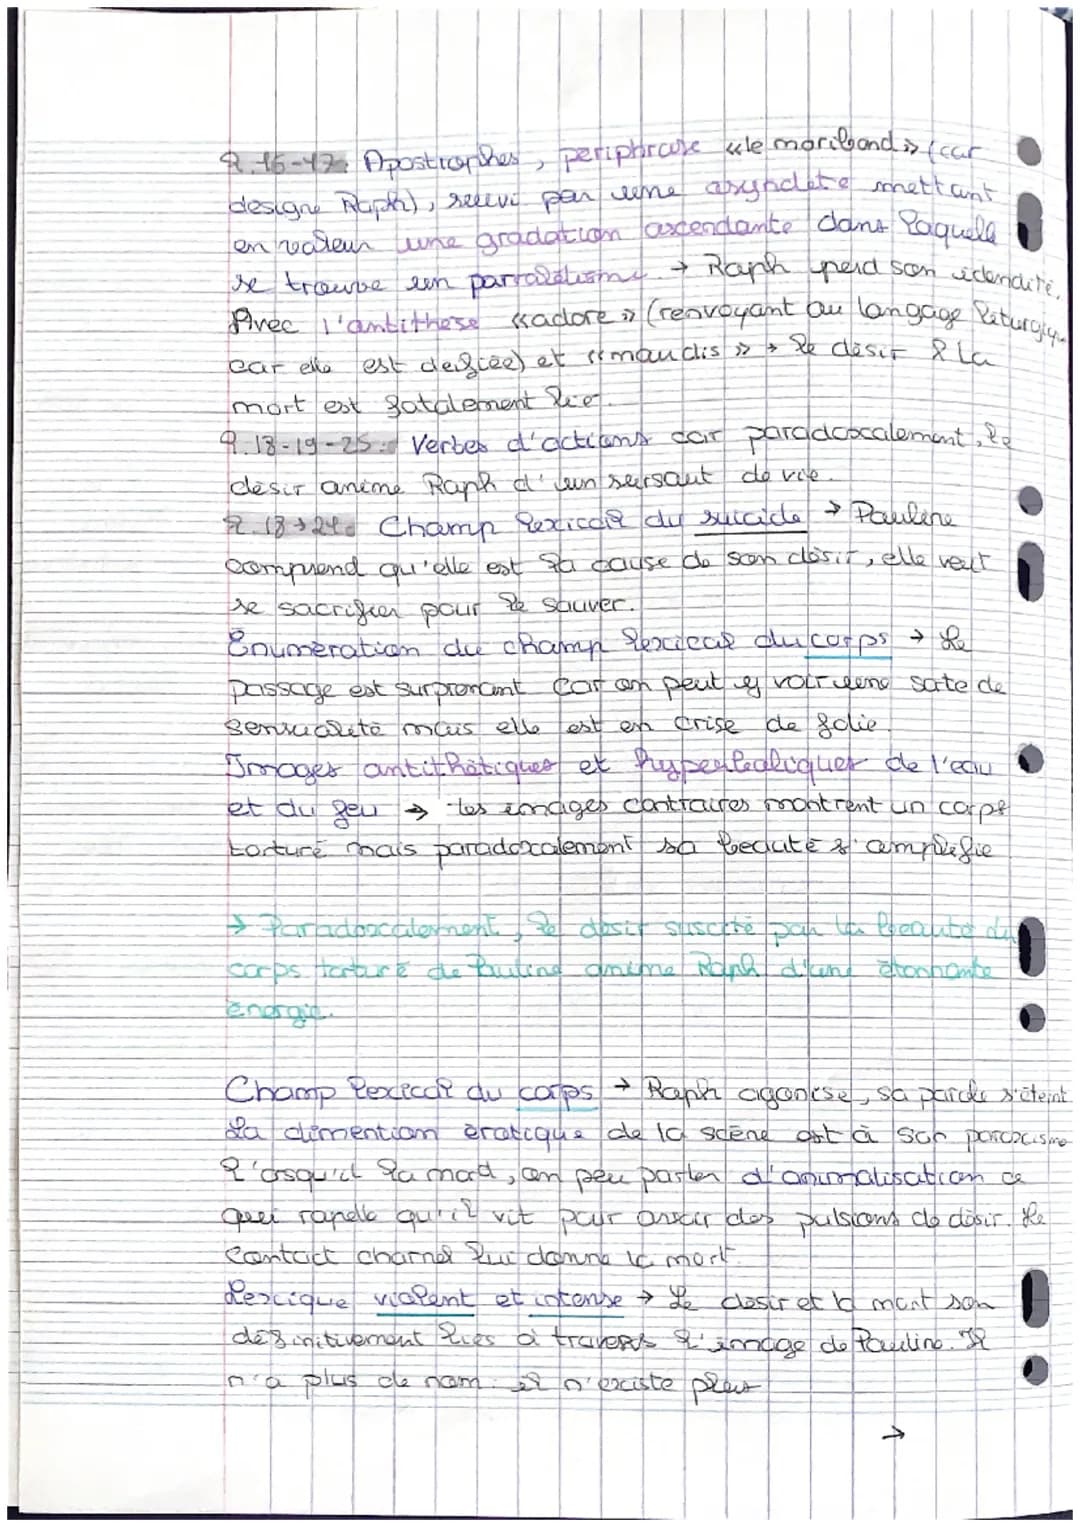 l.16-17: Apostrophes, periphrase « le moribond » (car
designe Raph), suivi par une asyndete mettant
en valeur une gradation ascendante dans laquelle
se trouve un parralelisme → Raph perd son idendité.
Avec l'antithese « adore » (renvoyant au langage liturgique
car elle est deifiée) et « maudis » → le desir & la
mort est fatalement lié.
l.18-19-25: Verbes d'actions car paradoxalement, le
desir anime Raph d'un sursaut de vie.
l.18→24: Champ lexical du suicide → Pauline
comprend qu'elle est la cause de son désir, elle veut
se sacrifier pour le sauver.
Énumération du champ lexical du corps → Le
passage est surprenant car on peut y voir une sorte de
sensualité mais elle est en crise de folie.
Images antithétiques et hyperboliques de l'eau
et du feu → les images contraires montrent un corps
torturé mais paradoxalement sa beauté s'amplifie
→ Paradoxalement, le désir suscité par la beauté du
corps torturé de Pauline anime Raph d'une étonnante
énergie.
Champ lexical du corps → Raph agonise, sa parole s'éteint
La dimention érotique de la scène est à son paroxisme
l'orsqu'il la mord, on peu parler d'animalisation ce
qui rapelle qu'il vit pour des pulsions de désir. Le
contact charnel lui donne la mort.
Lexique violent et intense → Le desir et la mort son
définitivement liés à travers l'image de Pauline. Il
n'a plus de nom: il n'existe plus
→